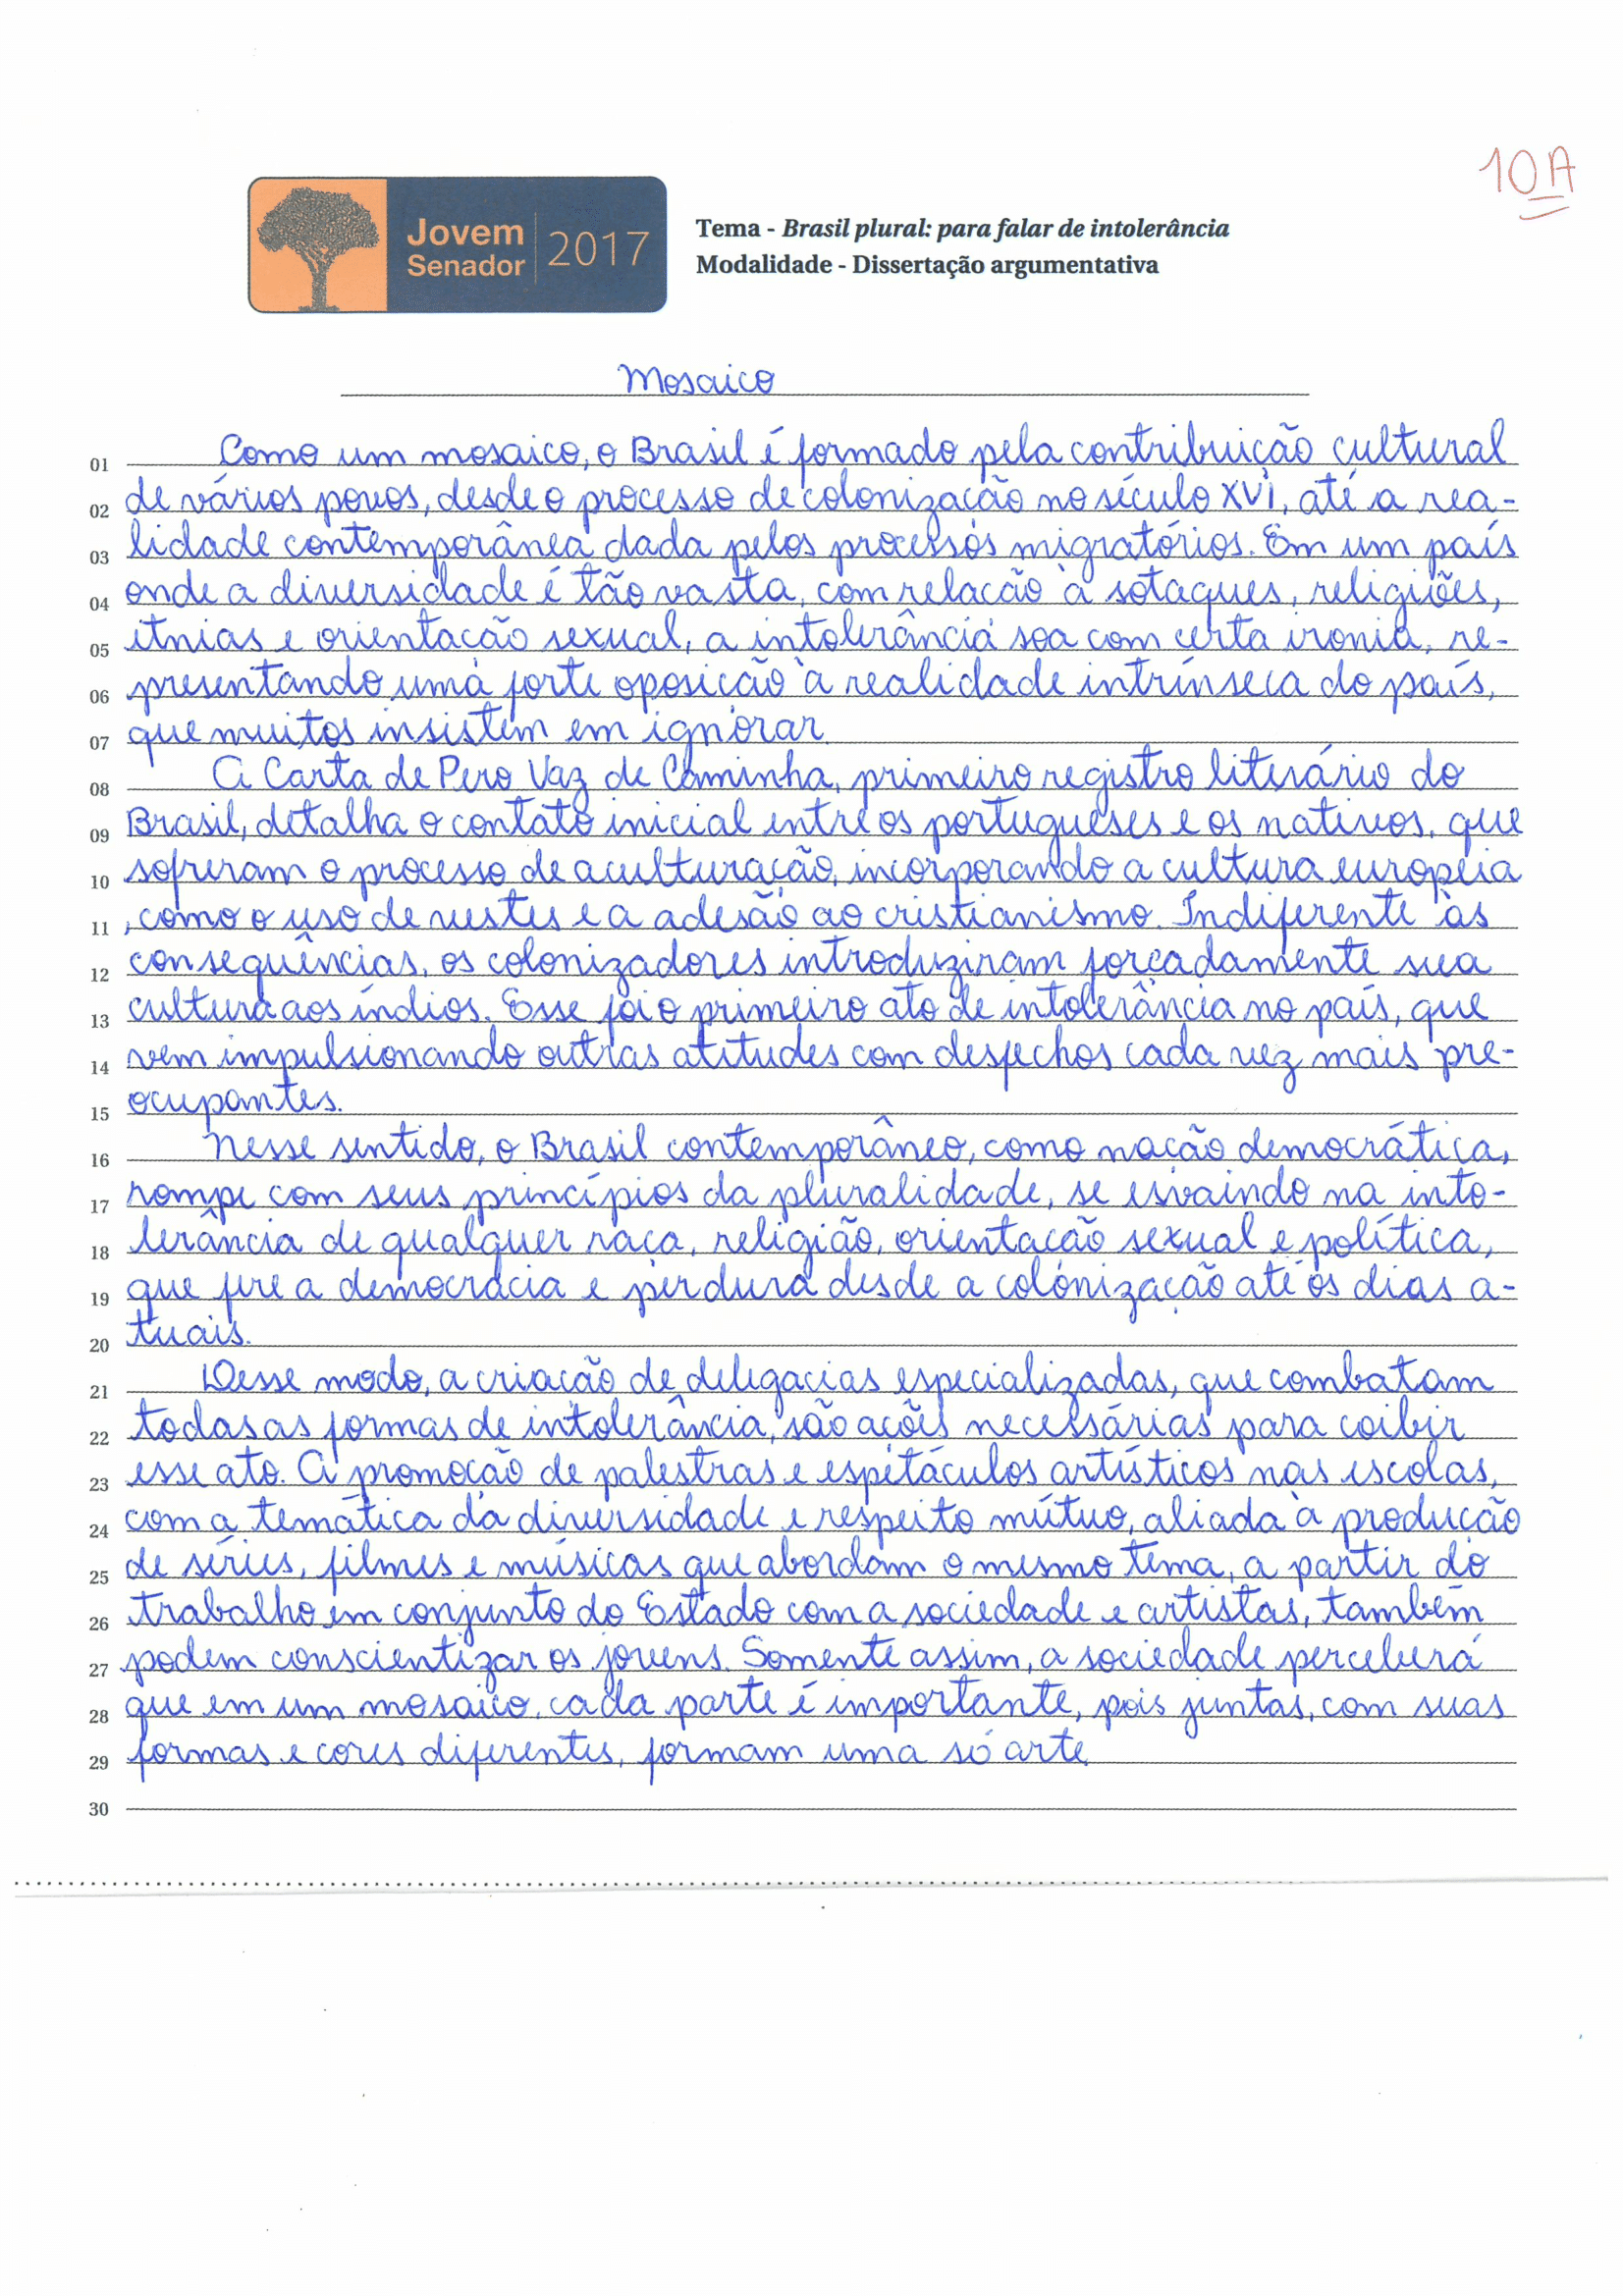 10A
Jovem Senador 2017
Tema - Brasil plural: para falar de intolerância
Modalidade - Dissertação argumentativa
Mosaico
01 Como um mosaico, o Brasil é formado pela contribuição cultural
02 de vários povos, desde o processo de colonização no século XVI, até a rea-
03 lidade contemporânea dada pelos processos migratórios. Em um país
04 onde a diversidade é tão vasta, com relação à sotaques, religiões,
05 etnias e orientação sexual, a intolerância soa com certa ironia, re-
06 presentando uma forte oposição à realidade intrínseca do país,
07 que muitos insistem em ignorar.
08 A Carta de Pero Vaz de Caminha, primeiro registro literário do
09 Brasil, detalha o contato inicial entre os portugueses e os nativos, que
10 sofreram o processo de aculturação, incorporando a cultura européia
11 , como o uso de vestes e a adesão ao cristianismo. Indiferente às
12 consequências, os colonizadores introduziram forçadamente sua
13 cultura aos índios. Esse foi o primeiro ato de intolerância no país, que
14 vem impulsionando outras atitudes com desfechos cada vez mais pre-
15 ocupantes.
16 Nesse sentido, o Brasil contemporâneo, como nação democrática,
17 rompe com seus princípios da pluralidade, se esvaindo na into-
18 lerância de qualquer raça, religião, orientação sexual e política,
19 que fere a democracia e perdura desde a colonização até os dias a-
20 tuais.
21 Desse modo, a criação de delegacias especializadas, que combatam
22 todas as formas de intolerância, são ações necessárias para coibir
23 esse ato. A promoção de palestras e espetáculos artísticos nas escolas,
24 com a temática da diversidade e respeito mútuo, aliada à produção
25 de séries, filmes e músicas que abordam o mesmo tema, a partir do
26 trabalho em conjunto do Estado com a sociedade e artistas, também
27 podem conscientizar os jovens. Somente assim, a sociedade perceberá
28 que em um mosaico, cada parte é importante, pois juntas, com suas
29 formas e cores diferentes, formam uma só arte.
30